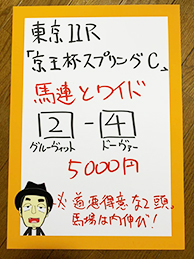 東京11R
「京王杯スプリングC」
馬連とワイド
2-4
グルーヴィット ドーヴァー
5000円
※道悪得意な2頭。
馬場は内伸び!